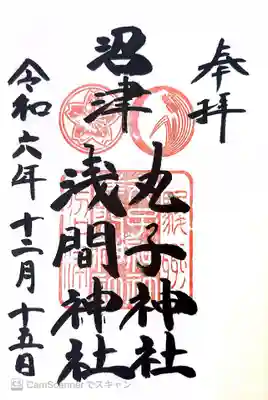 奉拝
沼津
丸子神社
浅間神社
令和六年十二月十五日
CS CamScanner でスキャン